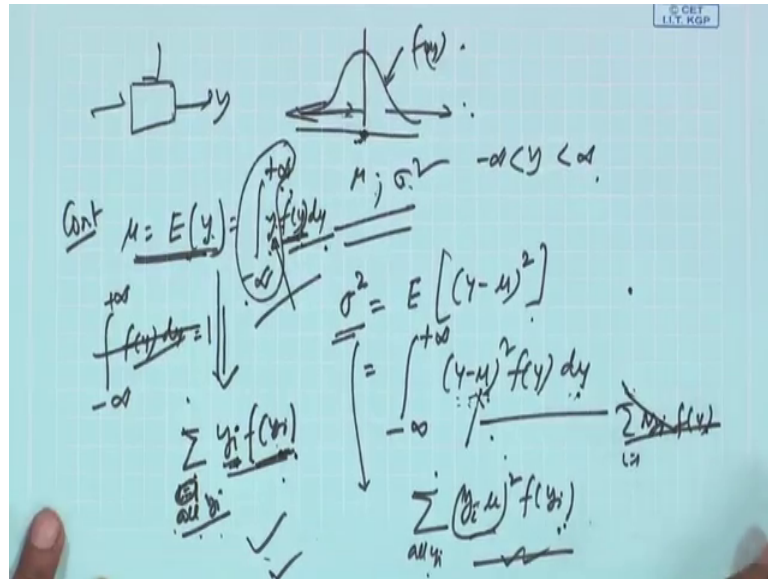 © CET
I.I.T. KGP
y
f(y)
μ ; σ²
-∞ < y < ∞
Cont μ = E(y) = ∫_{-∞}^{+∞} y f(y) dy
∫_{-∞}^{+∞} f(y) dy = 1
σ² = E[(y-μ)²]
= ∫_{-∞}^{+∞} (y-μ)² f(y) dy
∑_{all yi} yi f(yi)
∑_{all yi} (yi-μ)² f(yi)